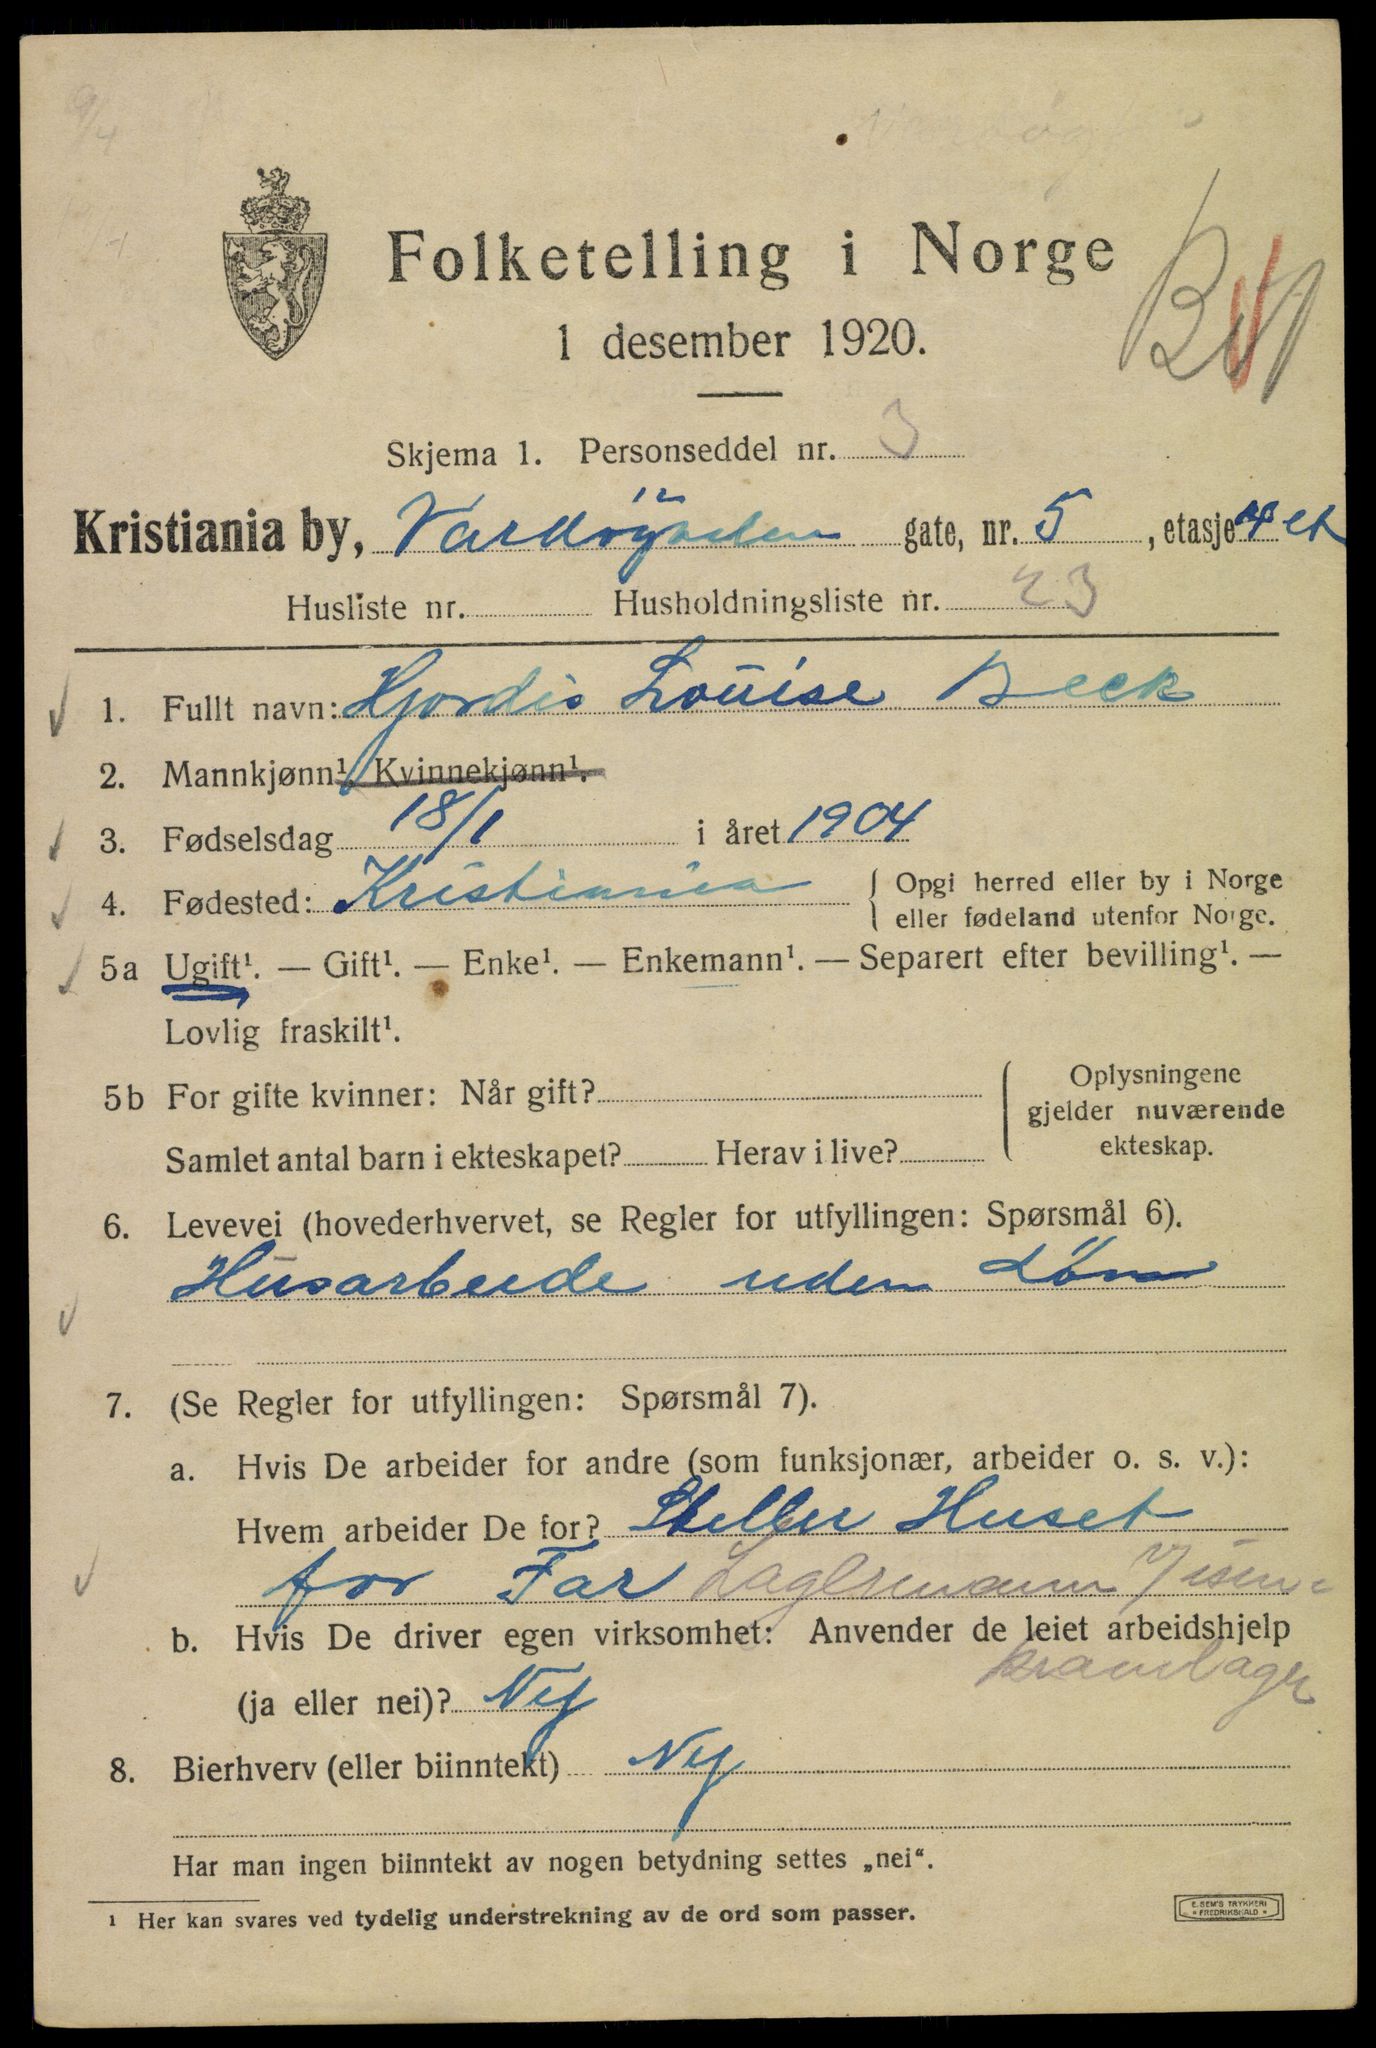 9/4
Folketelling i Norge
1 desember 1920.
Skjema 1. Personseddel nr. 3
Kristiania by, Vardøgaden gate, nr. 5, etasje 4 et
Husliste nr. Husholdningsliste nr. 23
1. Fullt navn: Hjordis Louise Beck
2. Mannkjønn¹. Kvinnekjønn¹.
3. Fødselsdag 18/1 i året 1904
4. Fødested: Kristiania { Opgi herred eller by i Norge
eller fødeland utenfor Norge.
5a Ugift¹. — Gift¹. — Enke¹. — Enkemann¹. — Separert efter bevilling¹. —
Lovlig fraskilt¹.
5b For gifte kvinner: Når gift? { Oplysningene
gjelder nuværende
Samlet antal barn i ekteskapet? Herav i live? ekteskap.
6. Levevei (hovederhvervet, se Regler for utfyllingen: Spørsmål 6).
Husarbeide uden Løn
7. (Se Regler for utfyllingen: Spørsmål 7).
a. Hvis De arbeider for andre (som funksjonær, arbeider o. s. v.):
Hvem arbeider De for? Steller Huset
for Far Lagermann Jisen-
b. Hvis De driver egen virksomhet: Anvender de leiet arbeidshjelp
kramlager
(ja eller nei)? Nej
8. Bierhverv (eller biinntekt) Nej
Har man ingen biinntekt av nogen betydning settes „nei“.
¹ Her kan svares ved tydelig understrekning av de ord som passer.
E. SEM'S TRYKKERI
* FREDRIKSHALD *